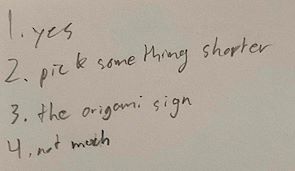 1. yes
2. pick something shorter
3. the origami sign
4. not much